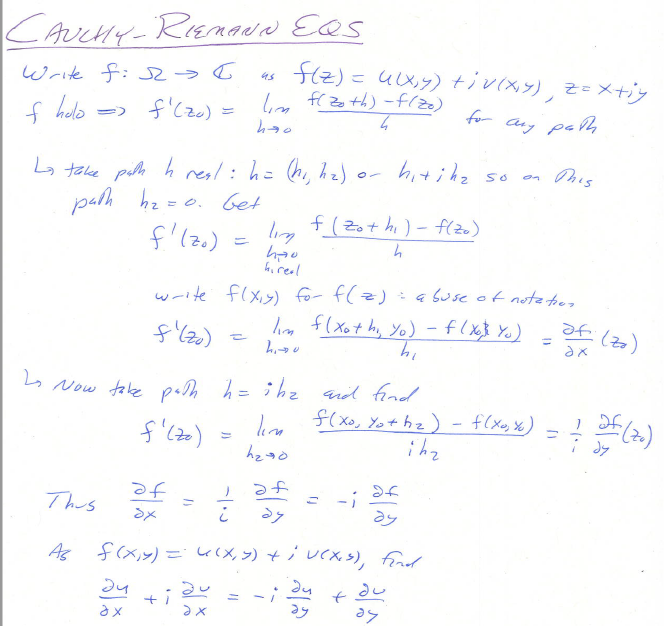 CAUCHY-RIEMANN EQS
Write f: Ω → ℂ as f(z) = u(x,y) + i v(x,y), z = x+iy
f holo ⟹ f'(z₀) = lim_{h→0} (f(z₀+h) - f(z₀))/h for any path
↳ take path h real: h = (h₁, h₂) or h₁+ih₂ so on this
path h₂=0. Get
f'(z₀) = lim_{h→0, h₁ real} (f(z₀+h₁) - f(z₀))/h
write f(x,y) for f(z): abuse of notation
f'(z₀) = lim_{h₁→0} (f(x₀+h₁, y₀) - f(x₀, y₀))/h₁ = ∂f/∂x (z₀)
↳ Now take path h = ih₂ and find
f'(z₀) = lim_{h₂→0} (f(x₀, y₀+h₂) - f(x₀,y₀))/ih₂ = 1/i ∂f/∂y (z₀)
Thus ∂f/∂x = 1/i ∂f/∂y = -i ∂f/∂y
As f(x,y) = u(x,y) + i v(x,y), find
∂u/∂x + i ∂v/∂x = -i ∂u/∂y + ∂v/∂y